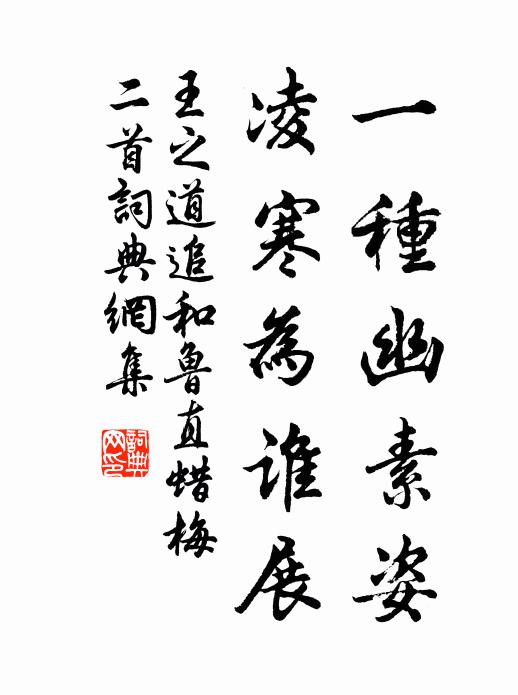 一種幽素姿
凌寒為誰展
王之道追和魯直蜡梅
二首詞典網集
詞典
网印